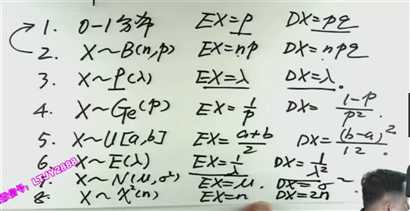 1. 0-1分布 EX=p DX=pq
2. X~B(n,p) EX=np DX=npq
3. X~P(λ) EX=λ DX=λ.
4. X~Ge(p) EX=1/p DX=(1-p)/p².
5. X~U[a,b] EX=(a+b)/2 DX=(b-a)²/12.
6. X~E(λ) EX=1/λ DX=1/λ²
7. X~N(μ,σ²) EX=μ. DX=σ²
8. X~χ²(n) EX=n DX=2n